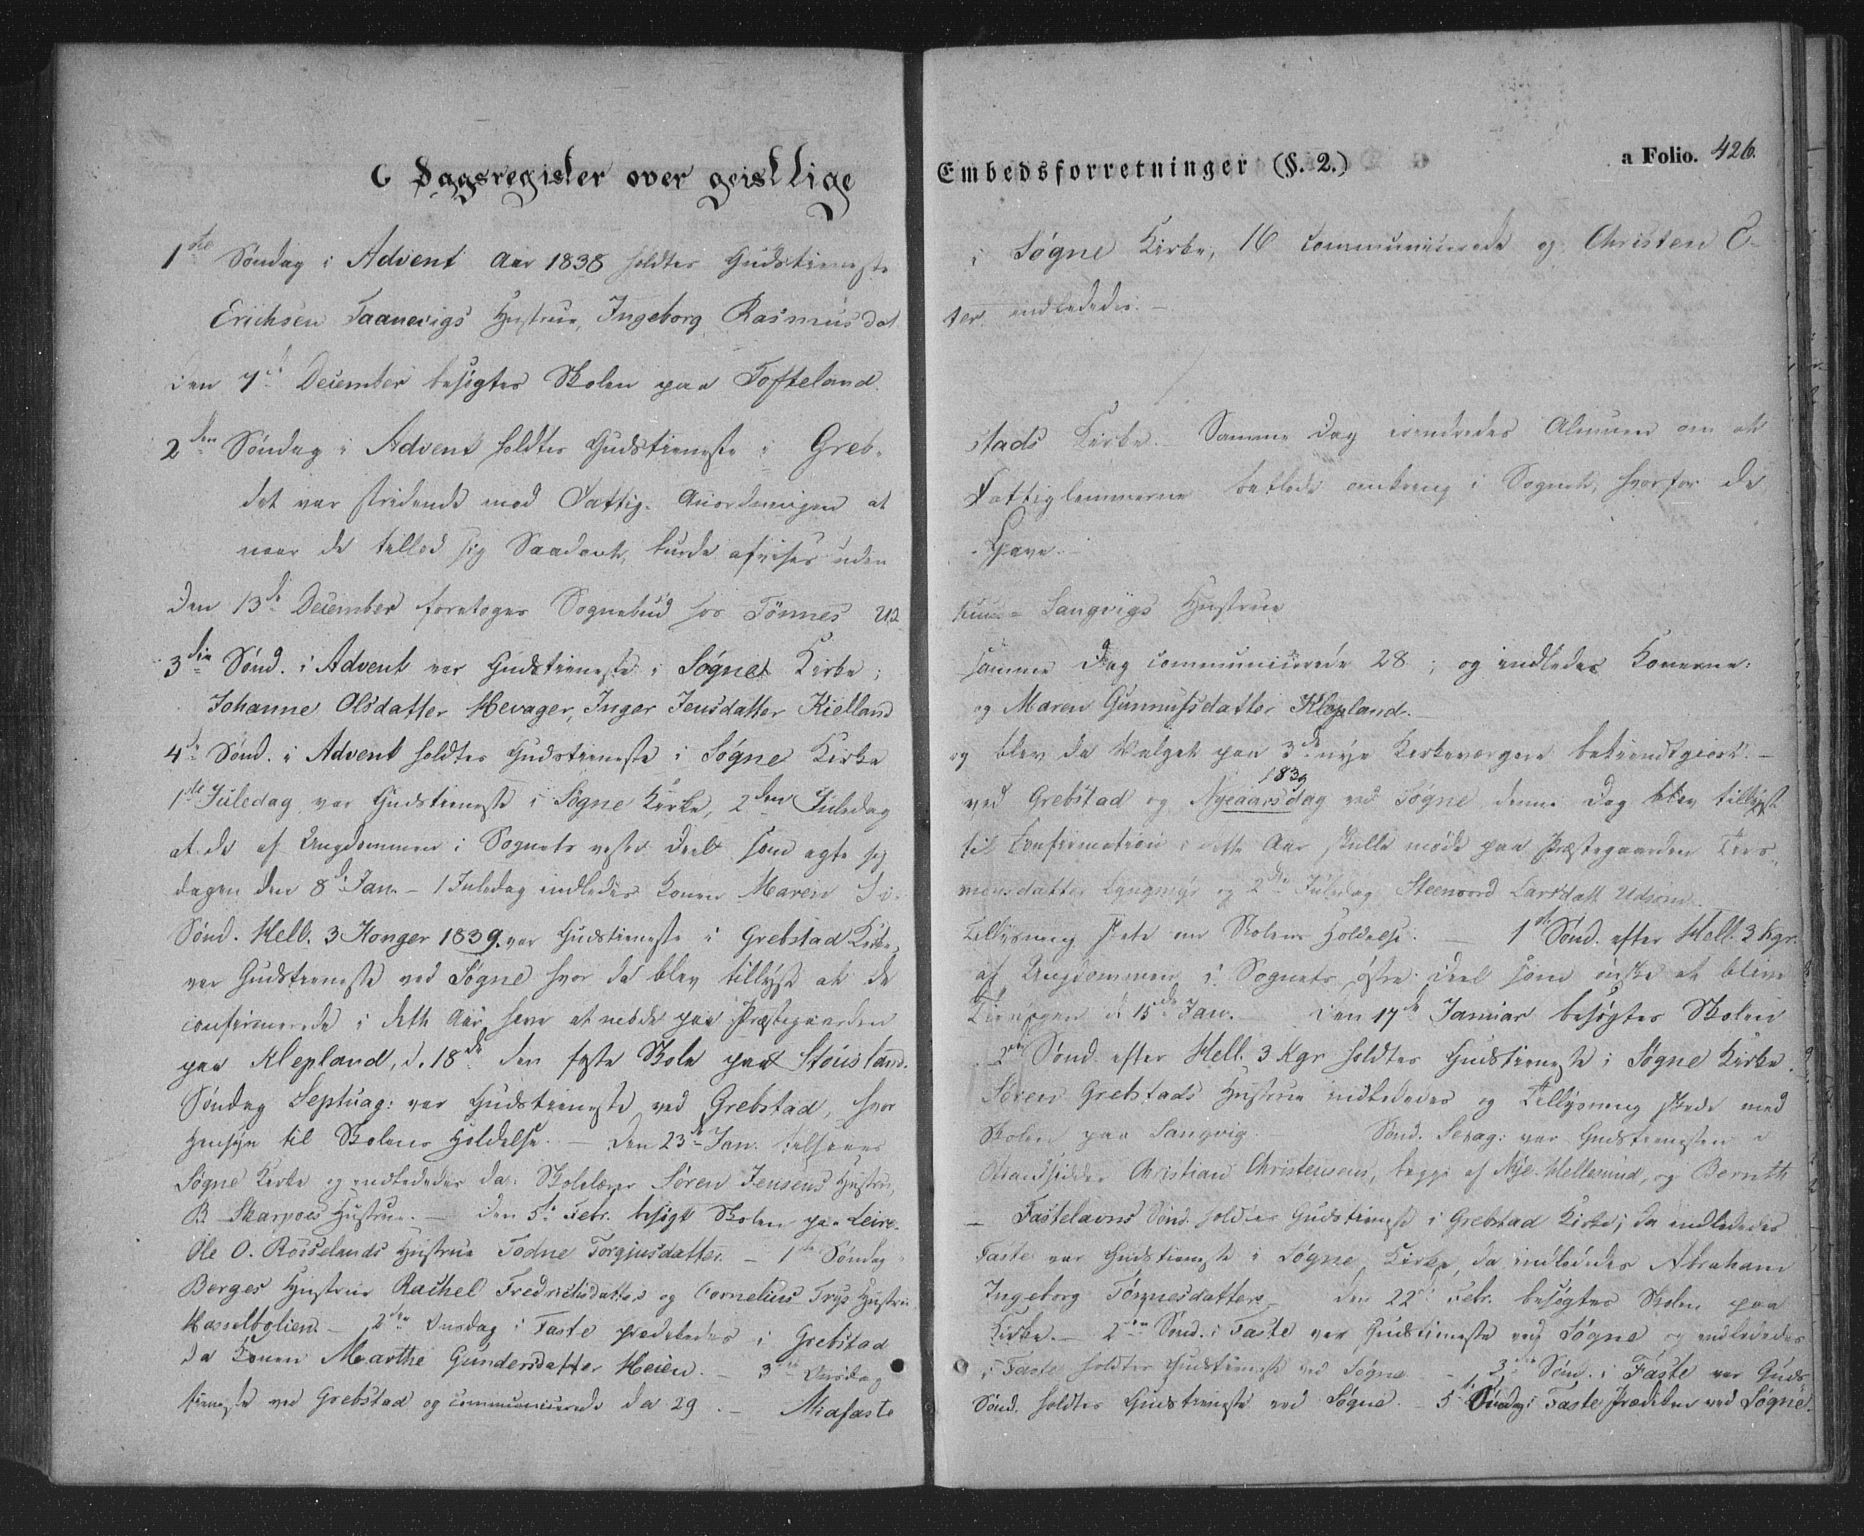 C Dagsregister over geistlige
1ste Søndag i Advent Aar 1838 holdtes Gudstieneste
Erichsen Taanevigs Hustrue, Ingeborg Rasmusdat
Den 7de December besøgtes Skolen paa Tofteland.
2den Søndag i Advent holdtes Gudstieneste i Greb-
det var stridende mod Fattig-Anordningen at
naar de tillod sig Saadant, burde afvises uden
Den 13de December foretoges Sognebud hos Tønnes
3die Sønd. i Advent var Gudstieneste i Søgne Kirke;
Johanne Olsdatter Hevager, Inger Jensdatter Kielland
4de Sønd. i Advent holdtes Gudstieneste i Søgne Kirke
1ste Juledag var Gudstieneste i Søgne Kirke, 2den Juledag
at de af Ungdommen i Sognets vestre Deel som agte sig
dagen den 8de Jan. - 1 Juledag indledes Konen Maren Si-
Sønd. Hell. 3 Konger 1839 var Gudstieneste i Grebstad Kirke,
var Gudstieneste ved Søgne hvor da blev tillyst at de
confirmerede i dette Aar have at møde paa Præstegaarden
paa Klepland, d. 18de den faste Skole paa Stousland.
Søndag Septuag: var Gudstieneste ved Grebstad, hvor
Hensyn til Skolens Holdelse. - Den 23de Jan. tilsaaes
Søgne Kirke og indlededes da: Skolelærer Søren Jensens Hustrue,
B. Skarpoes Hustrue. - Den 5te Febr. besøgt Skolen paa Leire-
Ole O. Rosselands Hustrue Todne Torgiusdatter. - 1ste Søndag
Berges Hustrue Rachel Fredriksdatter og Cornelius Trys Hustrue
Hasselbolien. - 2den Onsdag i Faste prædikedes i Grebstad
da Konen Marthe Gundersdatter Heien. - 3die Onsdag
tieneste ved Grebstad og communicerede da 29. - Midfaste
Embedsforretninger (§. 2.)
a Folio. 426.
i Søgne Kirke, 16 communicerede og Christen E-
ter indlededes. -
stads Kirke. - Samme Dag erindredes Almuen om at
Fattiglemmerne betlede omkring i Sognet, hvorfor de
Gave. -
Langvigs Hustrue
samme Dag communicerede 28; og indledes Konerne:
og Maren Gunnufsdatter Klepland. -
og blev da Valget paa 3de nye Kirkeværgere bekiendtgiort. -
1839
ved Grebstad og Nyeaarsdag ved Søgne, denne Dag blev tillyst
til Confirmation i dette Aar skulle møde paa Præstegaarden Tirs-
monsdatter Lyngmyr og 2den Juledag Steenvord Larsdatt Udsioe.
Tillysning skete om Skolens Holdelse. - 1ste Sønd. efter Hell. 3 Kgr.
af Ungdommen i Sognets østre Deel som ønske at blive
Tirsdagen d. 15de Jan. - Den 17de Januar besøgtes Skolen
2den Sønd. efter Hell. 3 Kgr holdtes Gudstieneste i Søgne Kirke.
Søren Grebstads Hustrue indlededes og Tillysning skede med
Skolen paa Langvig. Sønd. Sexag: var Gudstienesten i
Strandsidder Christian Christensens, begge af Nye-Hellesund, og Bernth
- Fastelavns Sønd. holdtes Gudstieneste i Grebstad Kirke; da indlededes
Faste var Gudstieneste i Søgne Kirke, da indlededes Abraham
Ingeborg Tønnesdatter. Den 22de Febr. besøgtes Skolen paa
Kirke. - 2den Sønd. i Faste var Gudstieneste ved Søgne og indlededes
i Faste holdtes Gudstieneste ved Søgne. - 3die Sønd. i Faste var Guds-
Sønd. holdtes Gudstieneste ved Søgne. - 5te Onsdag i Faste Prædiken ved Søgne.